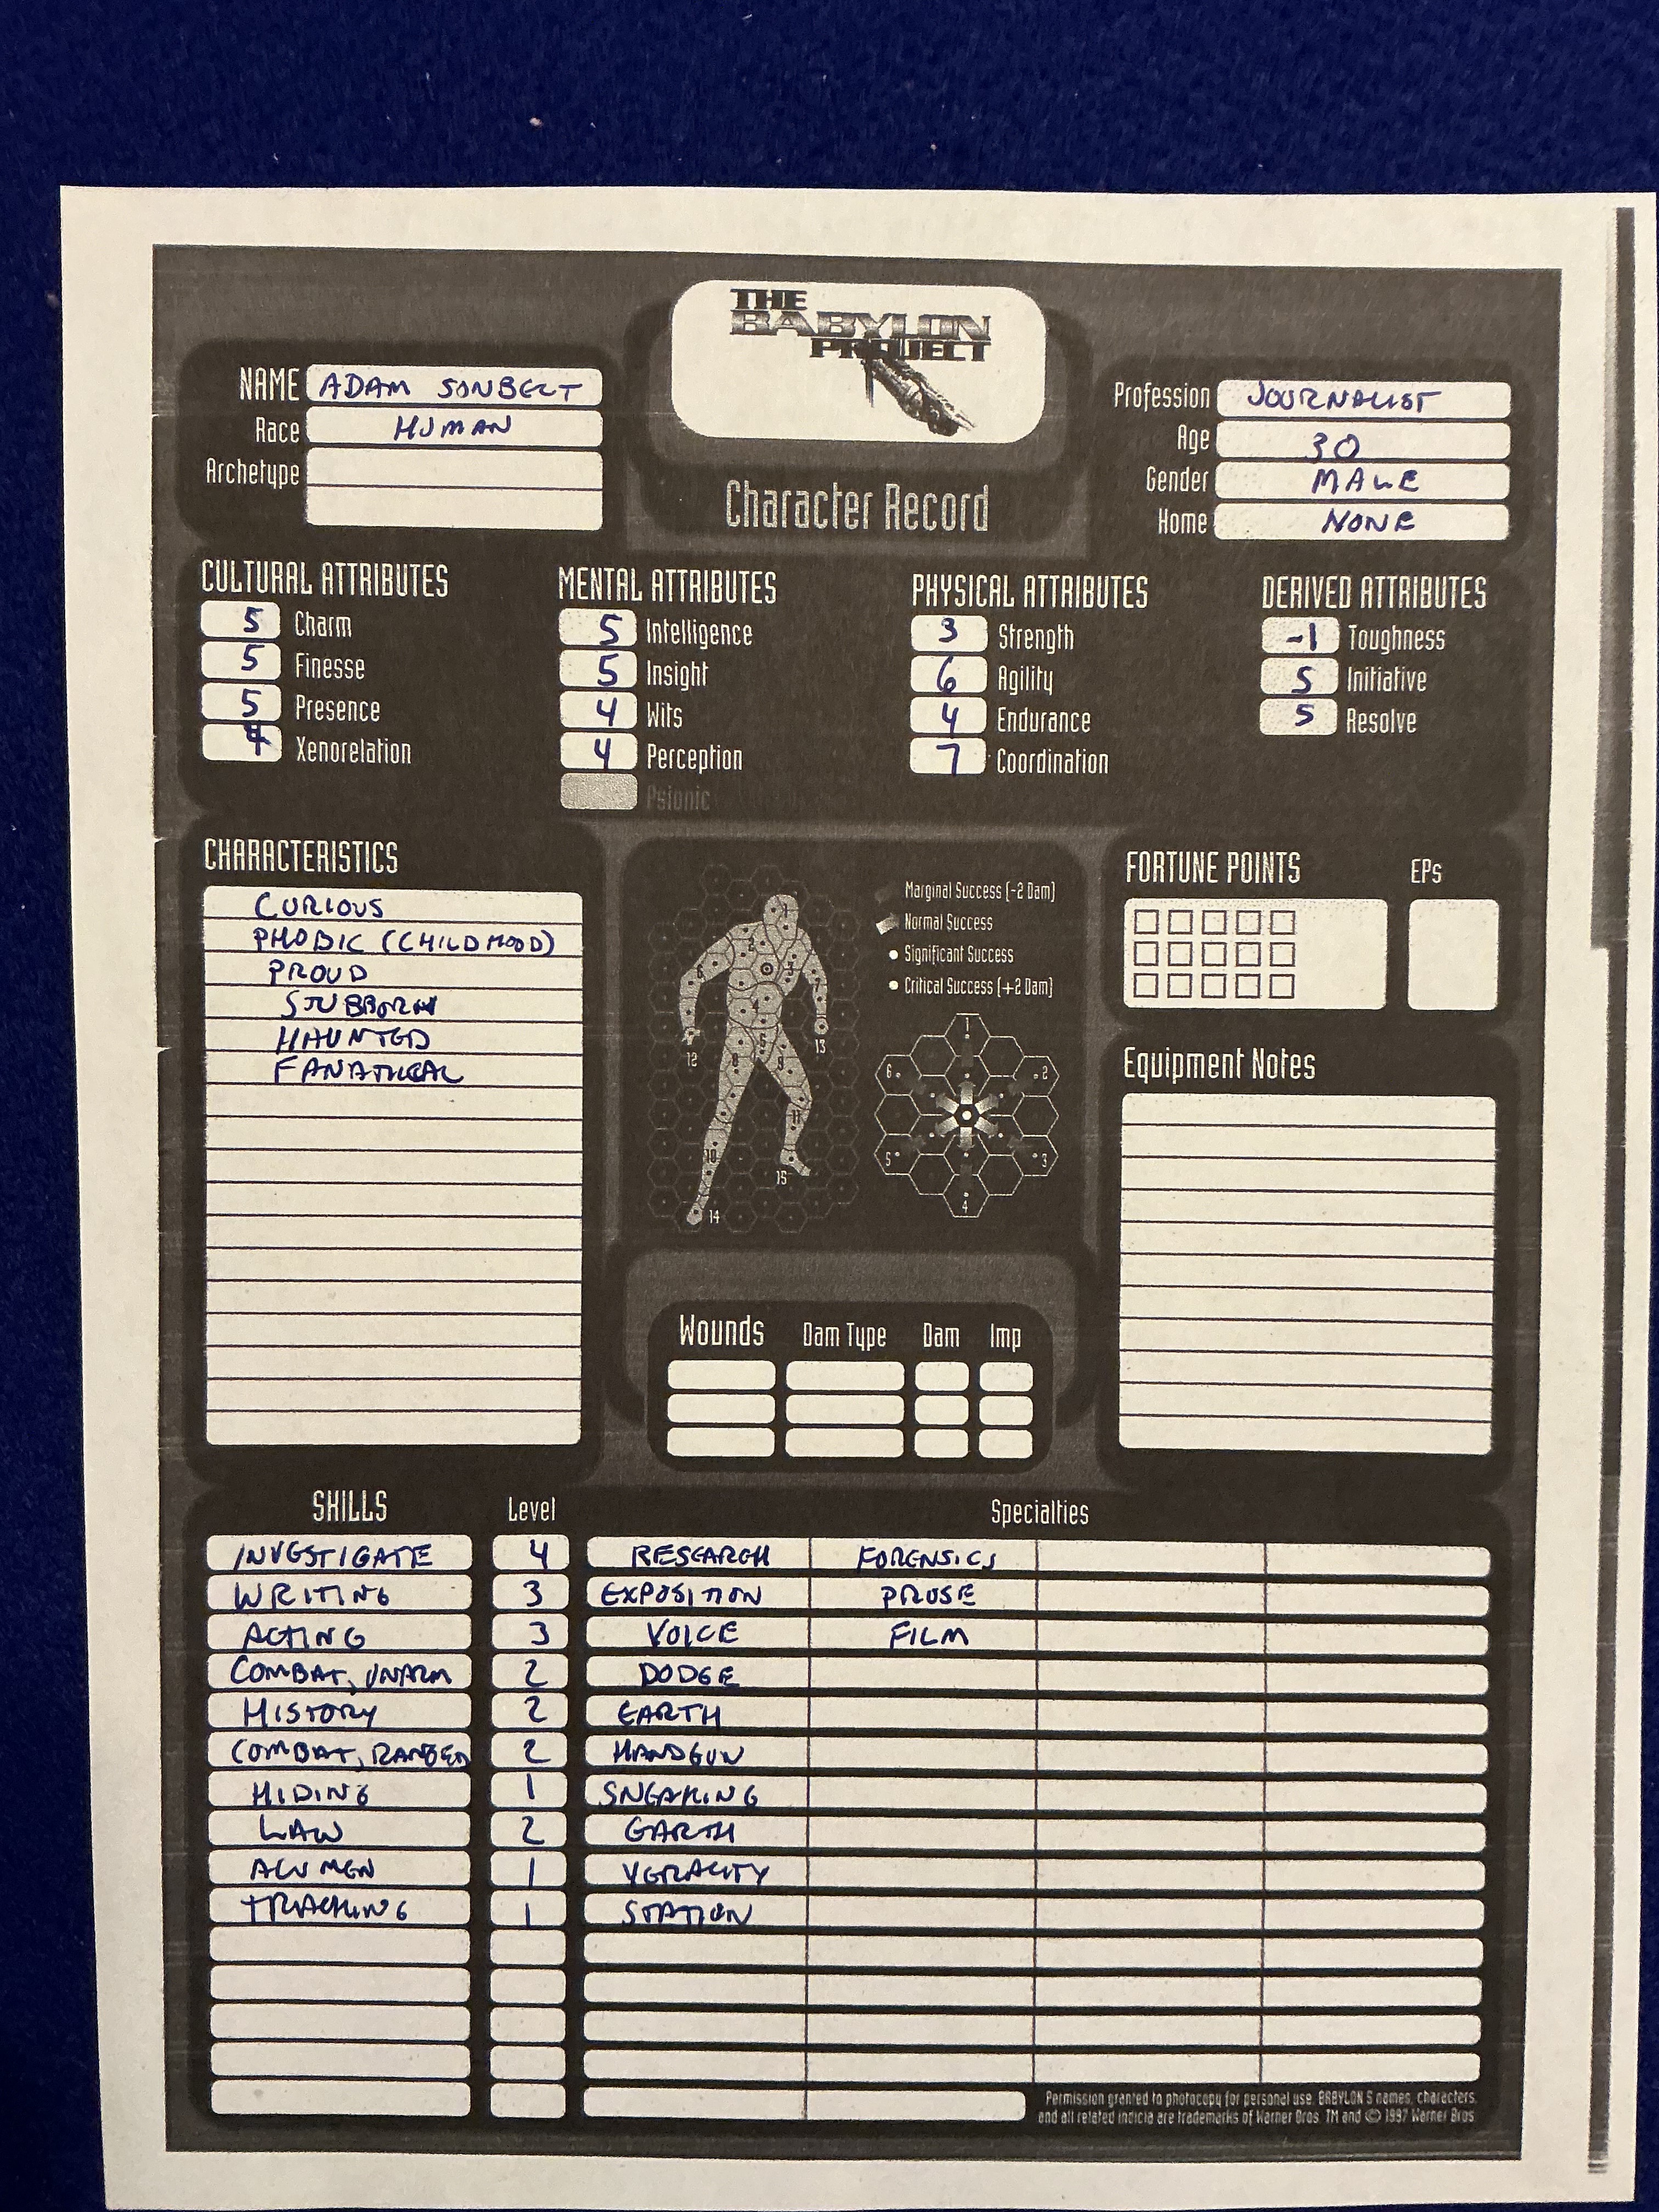 THE
BABYLON
PROJECT
Character Record
NAME ADAM SONBELT
Race HUMAN
Archetype
Profession JOURNALIST
Age 30
Gender MALE
Home NONE
CULTURAL ATTRIBUTES
5 Charm
5 Finesse
5 Presence
4 Xenorelation
MENTAL ATTRIBUTES
5 Intelligence
5 Insight
4 Wits
4 Perception
Psionic
PHYSICAL ATTRIBUTES
3 Strength
6 Agility
4 Endurance
7 Coordination
DERIVED ATTRIBUTES
-1 Toughness
5 Initiative
5 Resolve
CHARACTERISTICS
CURIOUS
PHOBIC (CHILDHOOD)
PROUD
STUBBORN
HAUNTED
FANATICAL
Marginal Success (-2 Dam)
Normal Success
Significant Success
Critical Success (+2 Dam)
1
2
3
4
5
6
8
9
10
11
12
13
14
15
1
2
3
4
5
6
FORTUNE POINTS
EPs
Equipment Notes
Wounds Dam Type Dam Imp
SKILLS Level Specialties
INVESTIGATE 4 RESEARCH FORENSICS
WRITING 3 EXPOSITION PROSE
ACTING 3 VOICE FILM
COMBAT, UNARM 2 DODGE
HISTORY 2 EARTH
COMBAT, RANGED 2 HANDGUN
HIDING 1 SNEAKING
LAW 2 EARTH
ACUMEN 1 VERACITY
TRACKING 1 STATION
Permission granted to photocopy for personal use. BABYLON 5 names, characters,
and all related indicia are trademarks of Warner Bros. TM and © 1997 Warner Bros.